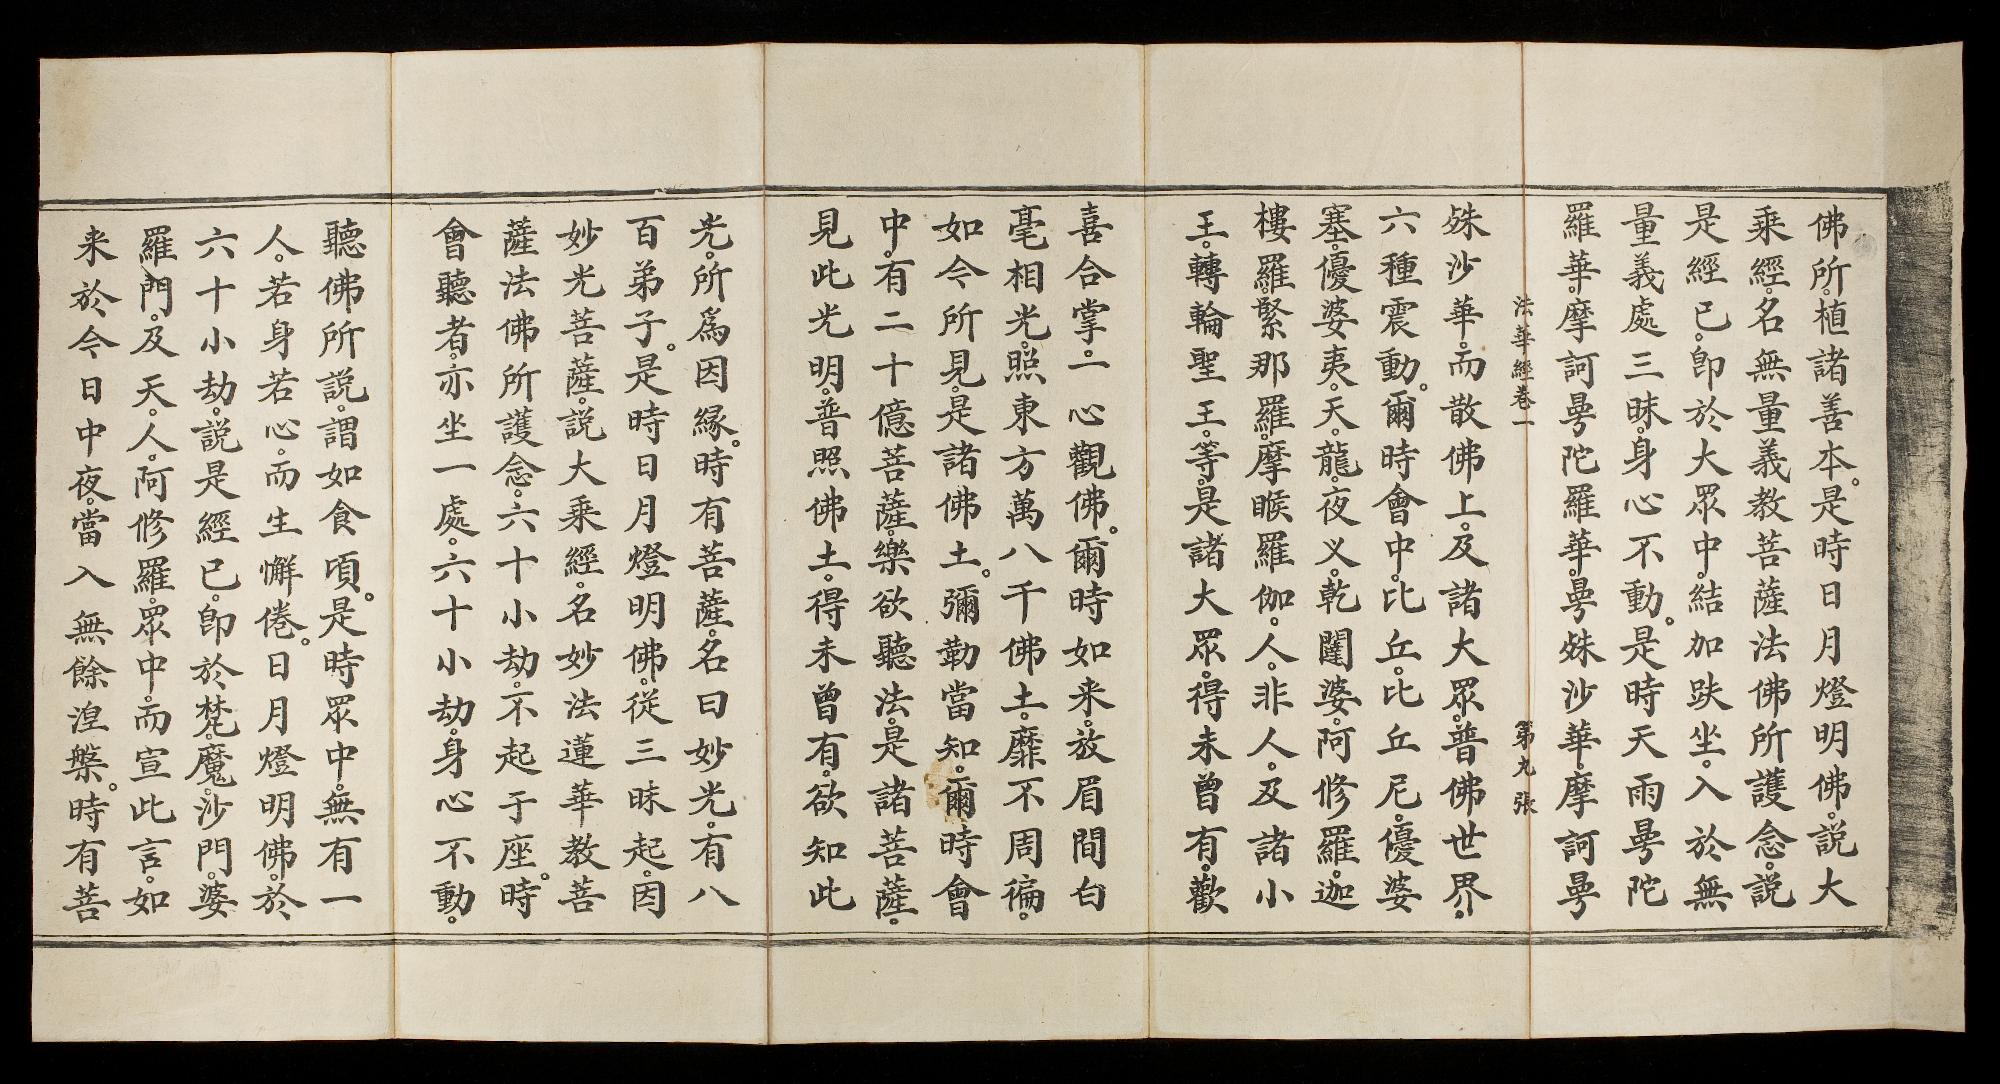 佛所。植諸善本。是時日月燈明佛。說大
乘經。名無量義教菩薩法佛所護念。說
是經已。即於大眾中。結加趺坐。入於無
量義處三昧。身心不動。是時天雨曼陀
羅華。摩訶曼陀羅華。曼殊沙華。摩訶曼
法華經卷一 第九張
殊沙華。而散佛上。及諸大眾。普佛世界。
六種震動。爾時會中。比丘。比丘尼。優婆
塞。優婆夷。天。龍。夜叉。乾闥婆。阿修羅。迦
樓羅。緊那羅。摩睺羅伽。人。非人。及諸小
王。轉輪聖王。等。是諸大眾。得未曾有。歡
喜合掌。一心觀佛。爾時如来。放眉間白
毫相光。照東方萬八千佛土。靡不周徧。
如今所見。是諸佛土。彌勒當知。爾時會
中。有二十億菩薩。樂欲聽法。是諸菩薩。
見此光明。普照佛土。得未曾有。欲知此
光。所為因緣。時有菩薩。名曰妙光。有八
百弟子。是時日月燈明佛。從三昧起。因
妙光菩薩。說大乘經。名妙法蓮華教菩
薩法佛所護念。六十小劫。不起于座。時
會聽者。亦坐一處。六十小劫。身心不動。
聽佛所說。謂如食頃。是時眾中。無有一
人。若身若心。而生懈倦。日月燈明佛。於
六十小劫。說是經已。即於梵。魔。沙門。婆
羅門。及天。人。阿修羅。眾中。而宣此言。如
来於今日中夜。當入無餘涅槃。時有菩